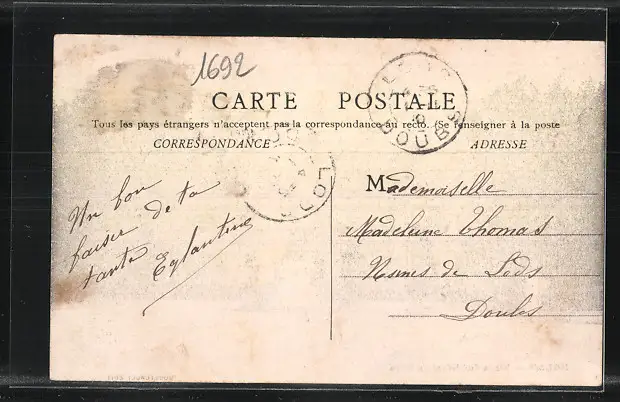 1692
CARTE POSTALE
Tous les pays étrangers n'acceptent pas la correspondance au recto. (Se renseigner à la poste
CORRESPONDANCE
ADRESSE
Un bon
baiser de ta
tante Eglantine
Mademoiselle
Madeleine Thomas
Usines de Lods
Doubs
DOUBS